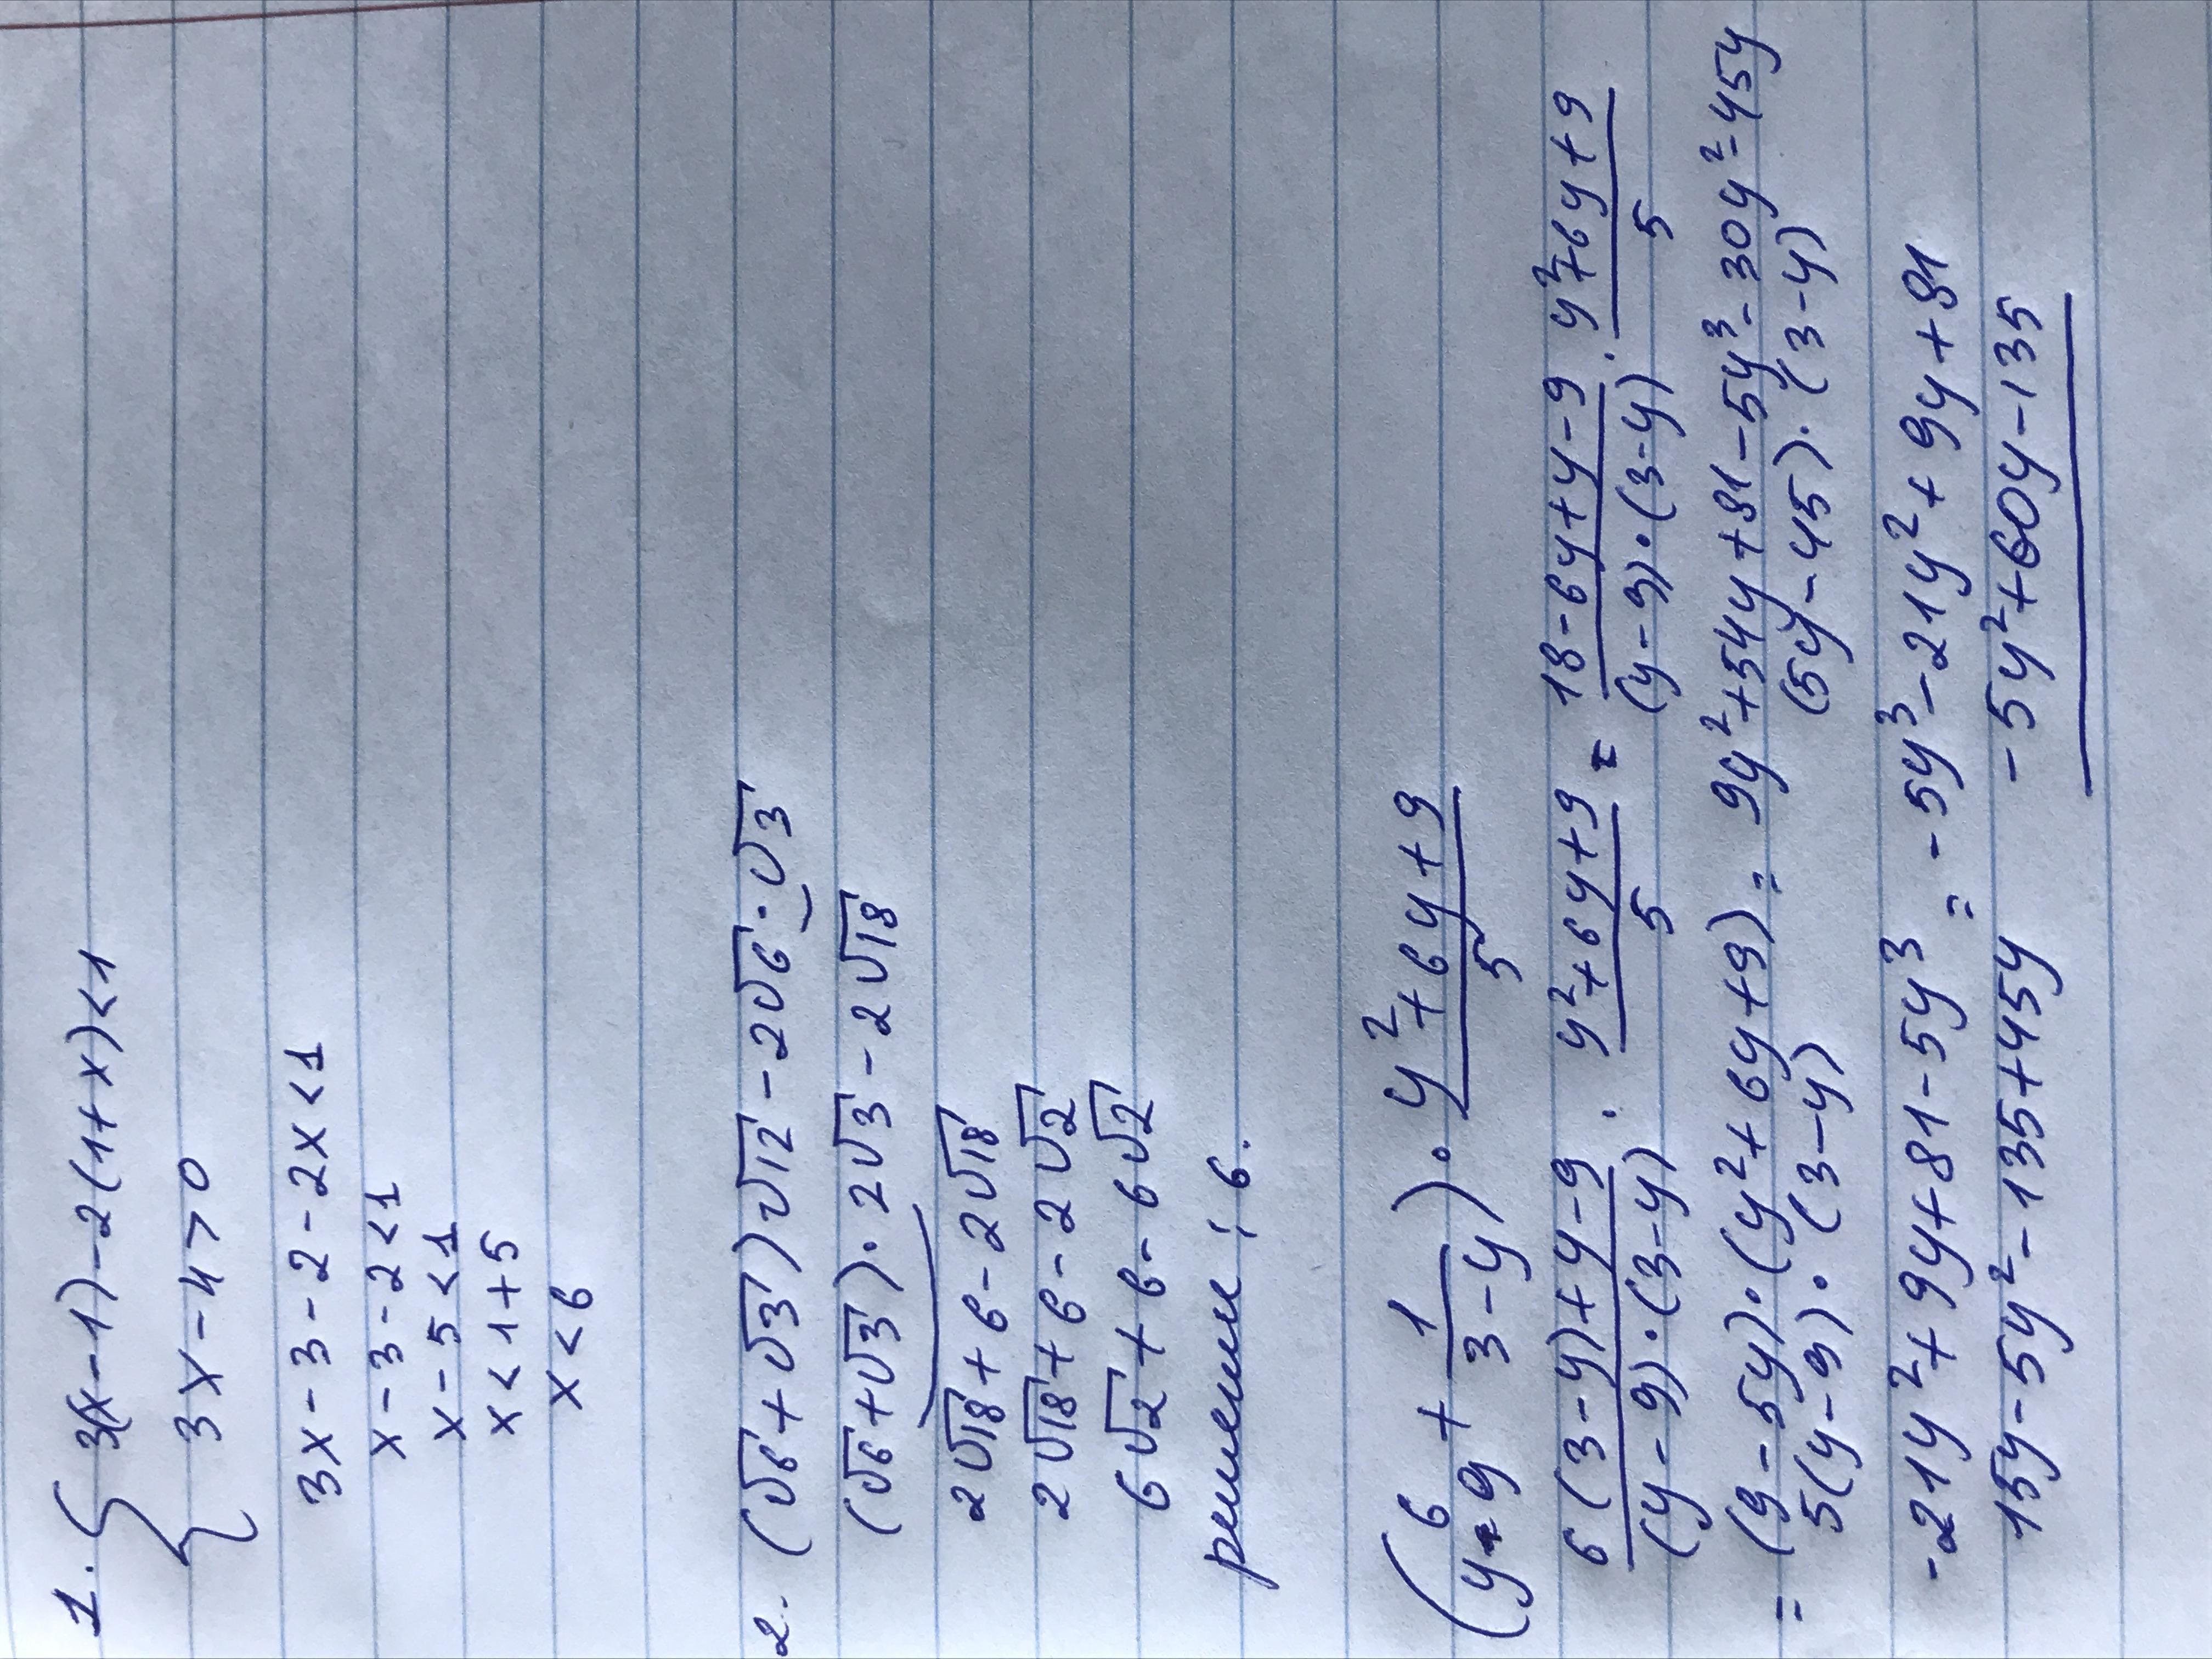 1. { 3(x-1)-2(1+x)<1
3x-4>0
3x-3-2-2x<1
x-3-2<1
x-5<1
x<1+5
x<6
2. (√6+√3)√12-2√6·√3
(√6+√3)·2√3-2√18
2√18+6-2√18
2√18+6-2√2
6√2+6-6√2
решение: 6.
(6/(y-9) + 1/(3-y))·(y²+6y+9)/5
(6(3-y)+y-9)/((y-9)·(3-y))·(y²+6y+9)/5 = (18-6y+y-9)/((y-9)·(3-y))·(y²+6y+9)/5
= (9-5y)·(y²+6y+9) = 9y²+54y+81-5y³-30y²-45y
5(y-9)·(3-y) (5y-45)·(3-y)
-21y²+9y+81-5y³ = -5y³-21y²+9y+81
15y-5y²-135+45y -5y²+60y-135